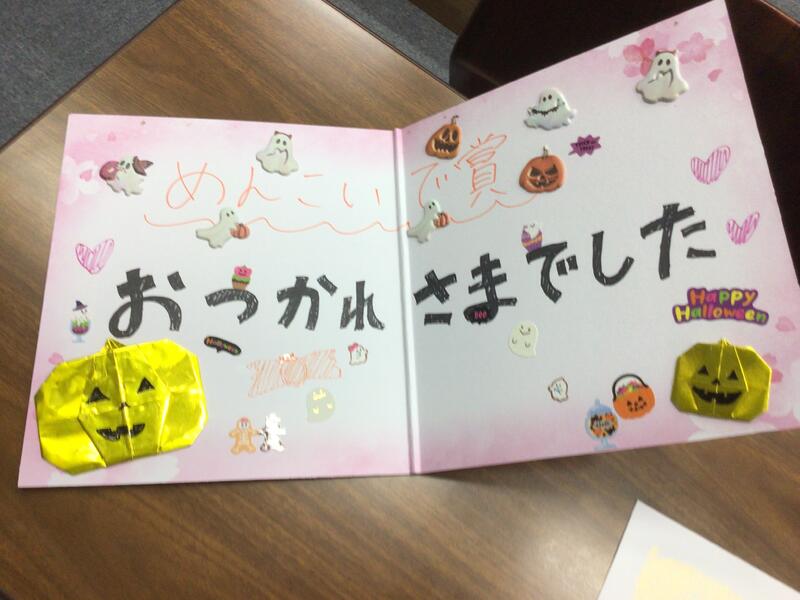 めんこいで賞
おつかれさまでした
Happy
Halloween
Halloween
BOO